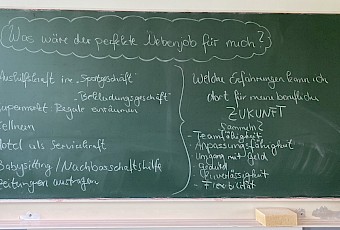 Was wäre der perfekte Nebenjob für mich?
Aushilfskraft im „Sportgeschäft"
„Bekleidungsgeschäft"
Supermarkt: Regale einräumen
Kellnern
Hotel als Servicekraft
Babysitting / Nachbarschaftshilfe
Zeitungen austragen
Welche Erfahrungen kann ich
dort für meine berufliche
ZUKUNFT
sammeln?
- Teamfähigkeit
- Anpassungsfähigkeit
- Umgang mit Geld
- Geduld
- Zuverlässigkeit
- Flexibilität